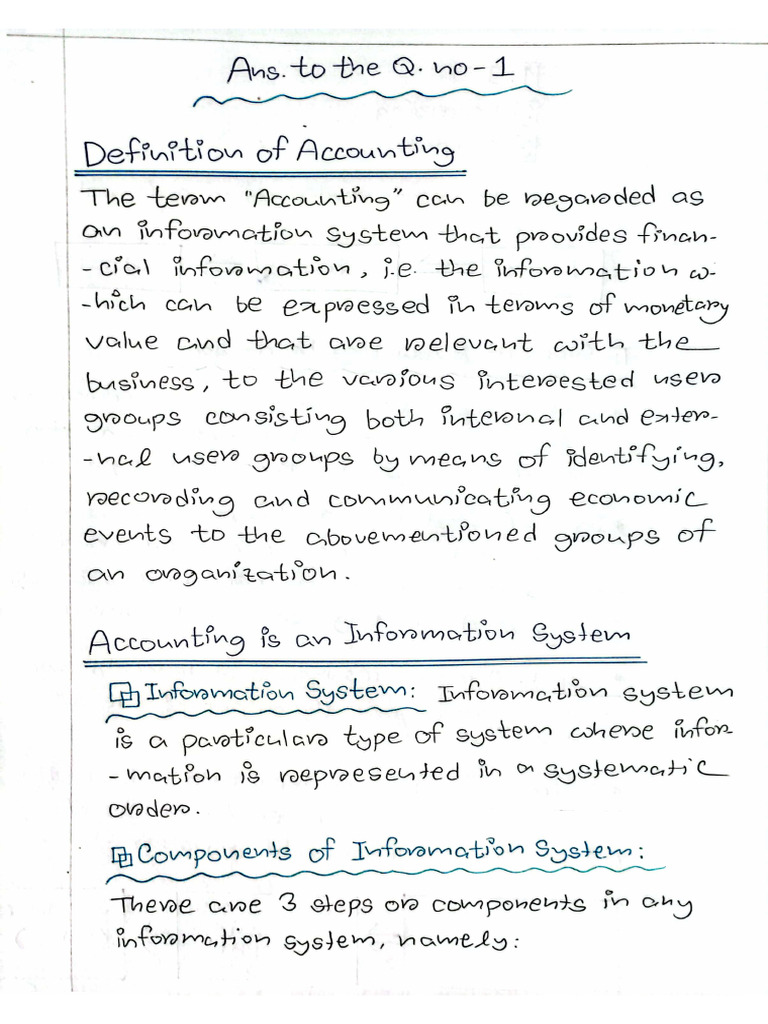 Ans. to the Q. no - 1
Definition of Accounting
The term "Accounting" can be regarded as
an information system that provides finan-
-cial information, i.e. the information w-
-hich can be expressed in terms of monetary
value and that are relevant with the
business, to the various interested user
groups consisting both internal and exter-
-nal user groups by means of identifying,
recording and communicating economic
events to the abovementioned groups of
an organization.
Accounting is an Information System
Information System: Information system
is a particular type of system where infor
-mation is represented in a systematic
order.
Components of Information System:
There are 3 steps or components in any
information system, namely: